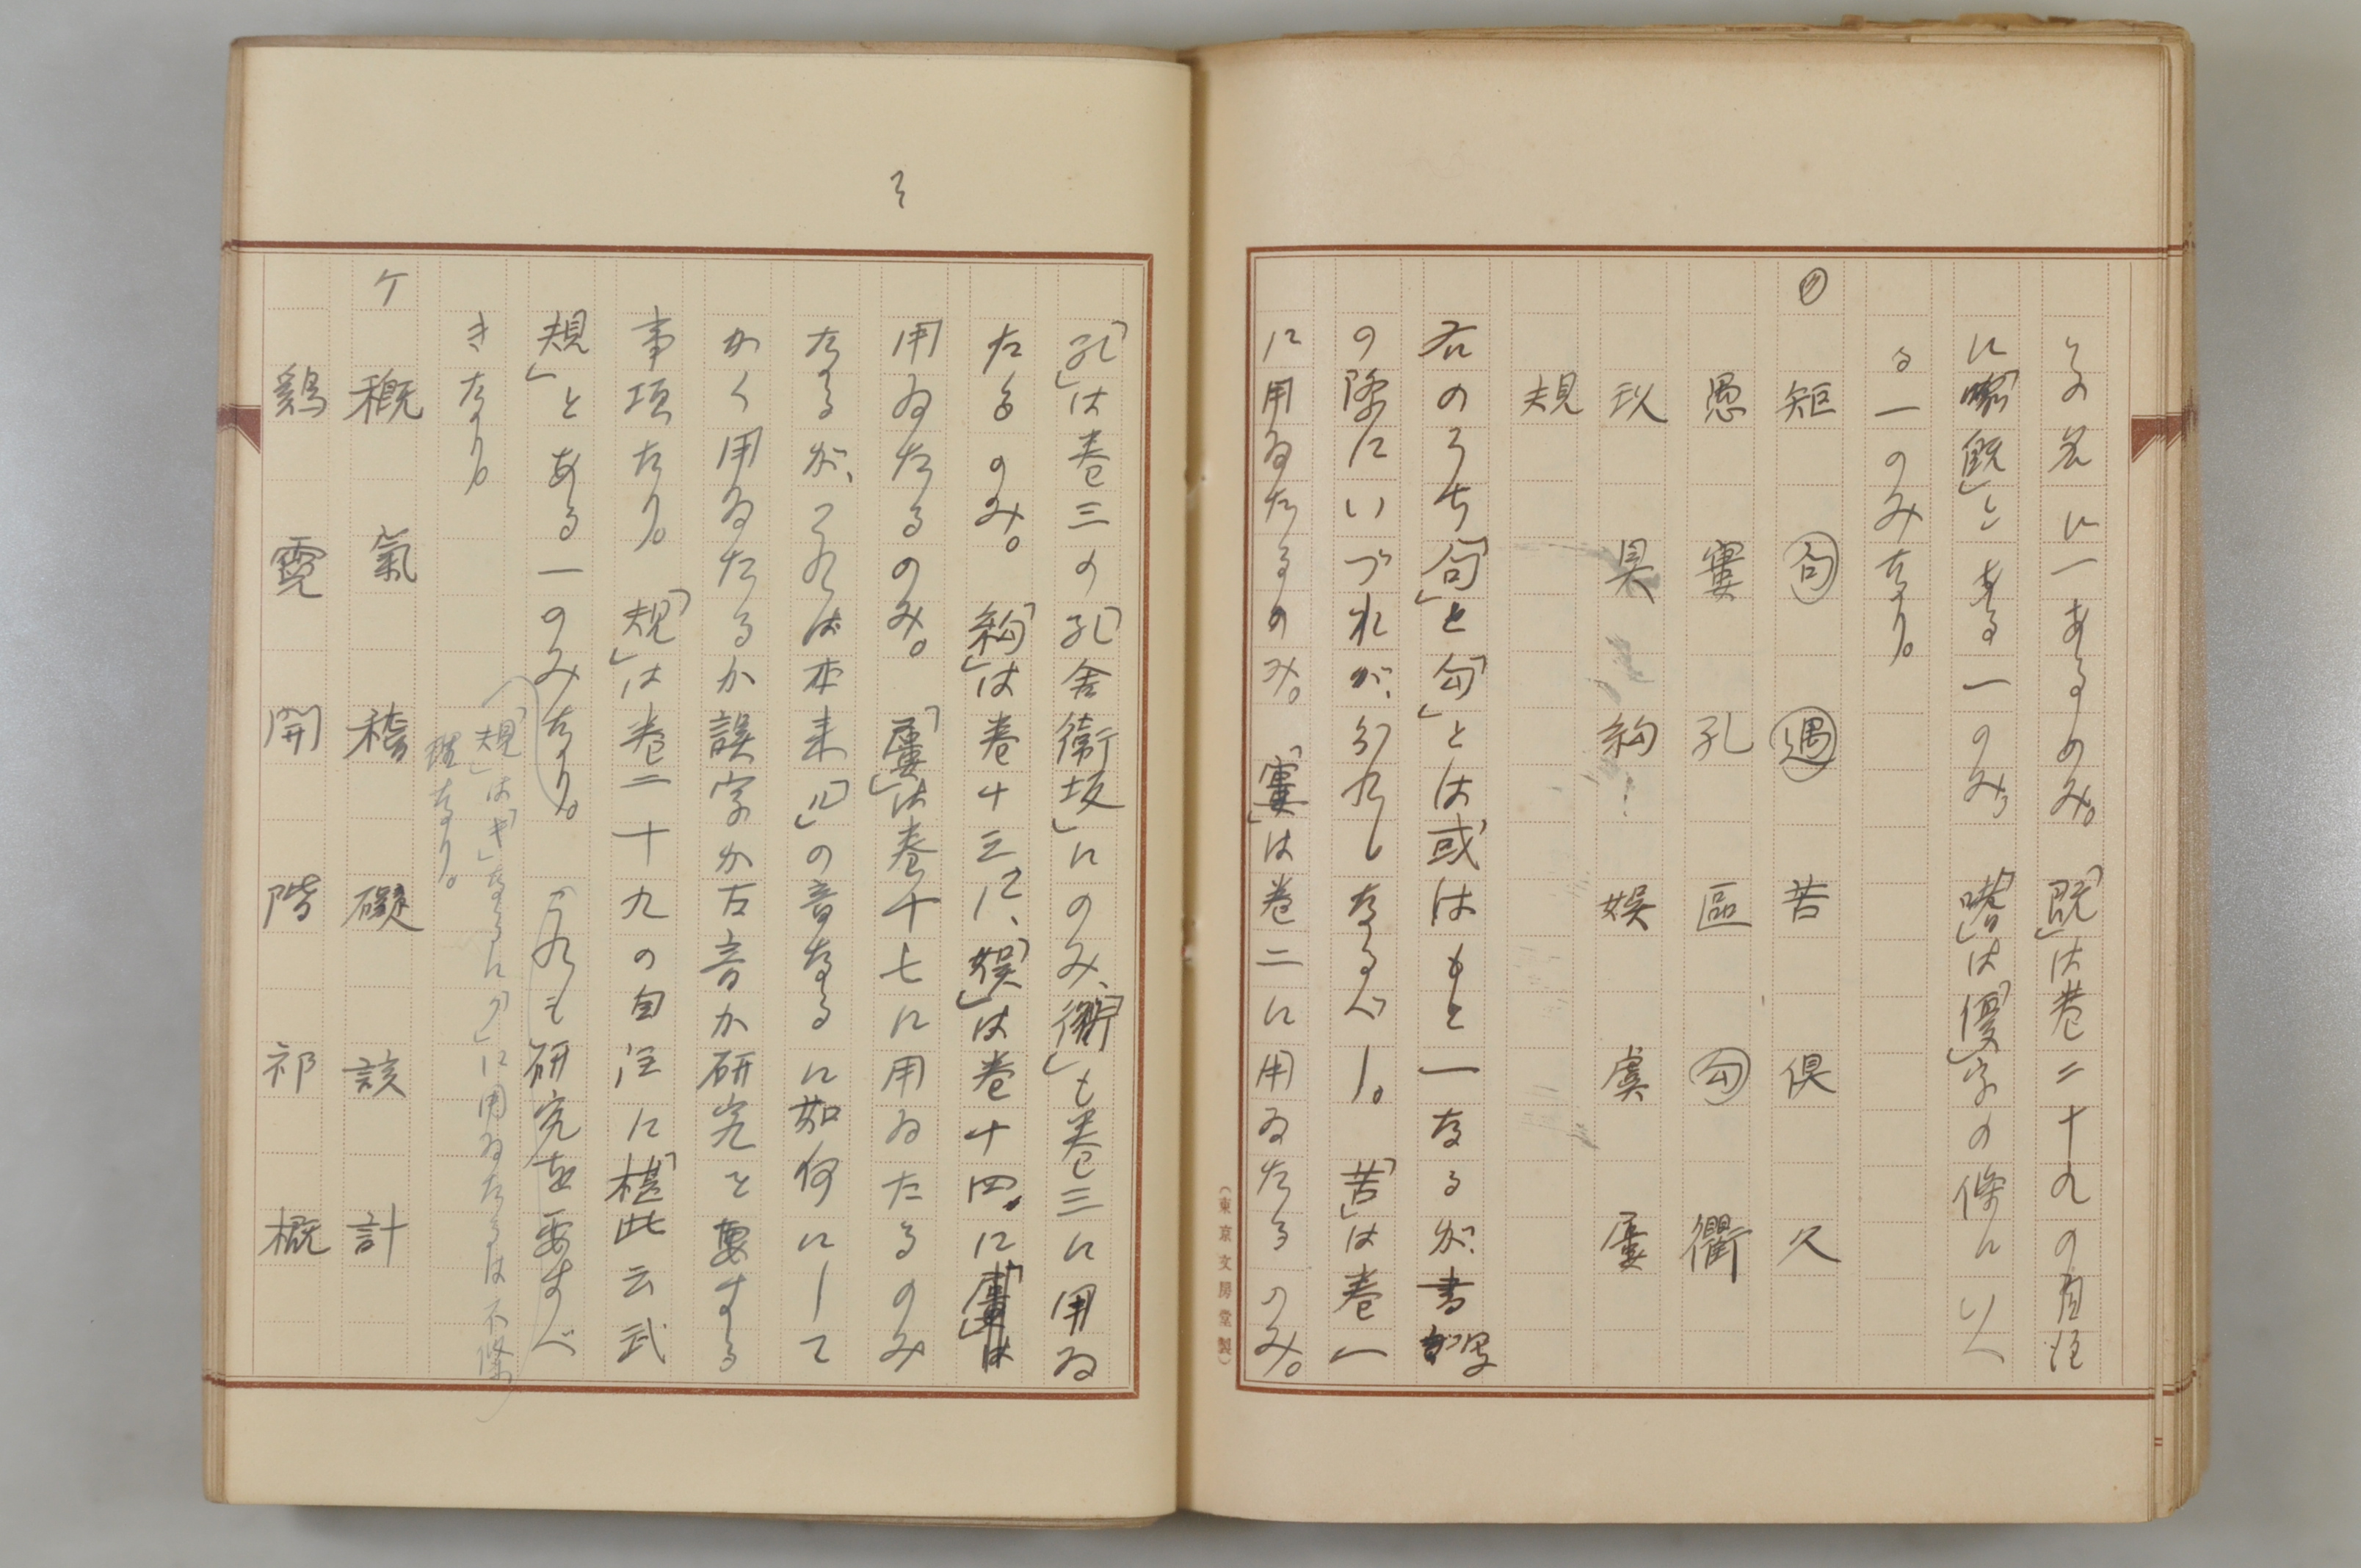 その名に一あるのみ。「既」は巻二十九の自注
に「慨」とある一のみ、「嗜」は「優」字の條にいへ
る一のみなり。
ク
矩 句 遇 苦 倶 久
愚 寠 孔 區 勾 衢
玖 具 絇 娯 虞 屨
規
右のうち「句」と「勾」とは或はもと一なるが、書写
の際にいづれが分れしなるべし。「苦」は巻一
に用ゐたるのみ。「寠」は巻二に用ゐたるのみ。
(東京文房堂製)
「孔」は巻三の「孔舎衛坂」にのみ、「衢」も巻三に用ゐ
たるのみ。「絇」は巻十三に、「娯」は巻十四に
用ゐたるのみ。「屨」は巻十七に用ゐたるのみ
なるが、これは本来「ル」の音なるに如何にして
かく用ゐたるか誤字か古音か研究を要する
事項なり。「規」は巻二十九の自注に「椹此云武
規」とある一のみなり。これも研究を要すべ
きなり。
(「規」は「キ」なるに「ク」に用ゐたるは不條
理なり。
ケ
概 氣 稽 礙 該 計
鷄 霓 開 階 祁 概